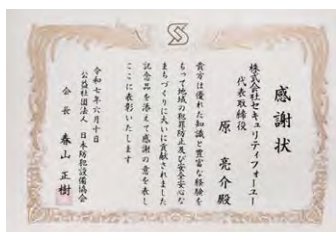 感謝状
株式会社セキュリティフォーユー
代表取締役
原 亮介殿
貴方は優れた知識と豊富な経験を
もって地域の犯罪防止及び安全安心な
まちづくりに大いに貢献されました
記念品を添えて感謝の意を表し
ここに表彰いたします
令和七年六月十日
公益社団法人 日本防犯設備協会
会長 春山正樹